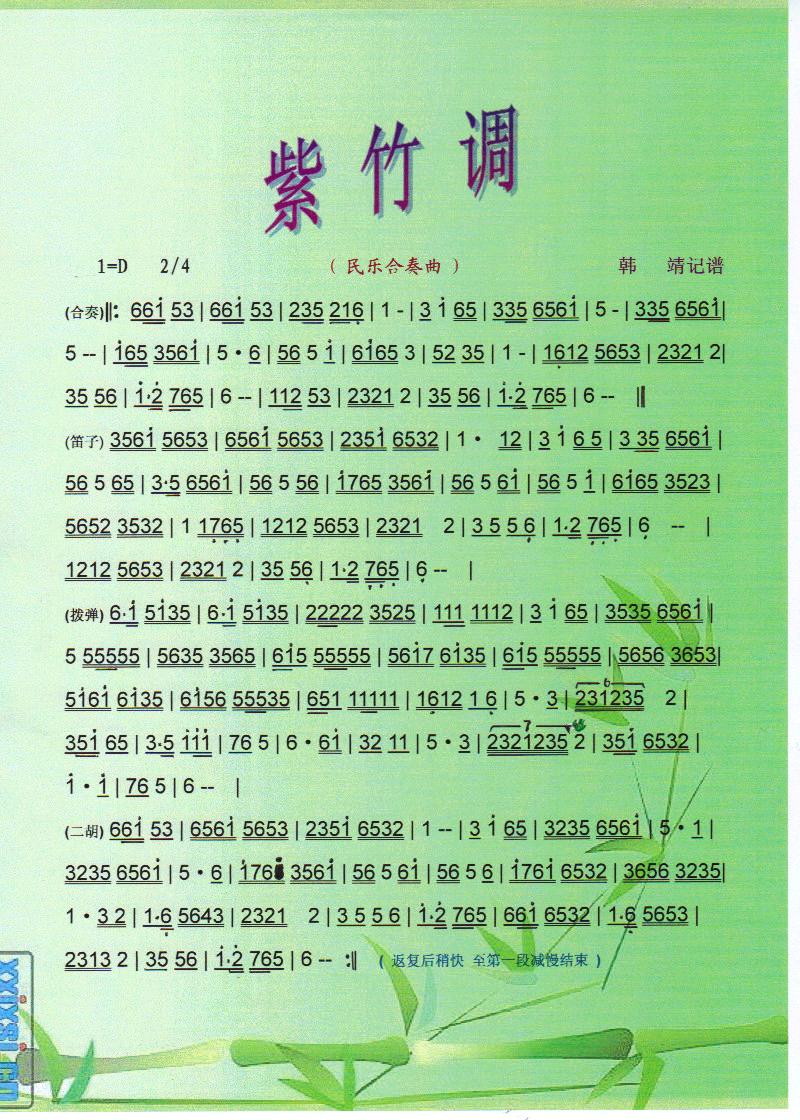 紫竹调
1=D 2/4 （ 民乐合奏曲 ） 韩 靖记谱
(合奏)‖: 66i̇ 53 | 66i̇ 53 | 235 216̣ | 1 - | 3 i̇ 65 | 335 656i̇ | 5 - | 335 656i̇ |
5 -- | i̇65 356i̇ | 5 · 6 | 56 5 i̇ | 6i̇65 3 | 52 35 | 1 - | 16̣12 5653 | 2321 2 |
35 56 | i̇·2̇ 765 | 6 -- | 112 53 | 2321 2 | 35 56 | i̇·2̇ 765 | 6 -- ‖
(笛子) 356i̇ 5653 | 656i̇ 5653 | 235i̇ 6532 | 1 · 12 | 3 i̇ 6 5 | 3 35 656i̇ |
56 5 65 | 3·5 656i̇ | 56 5 56 | i̇765 356i̇ | 56 5 6i̇ | 56 5 i̇ | 6i̇65 3523 |
5652 3532 | 1 17̣6̣5̣ | 1212 5653 | 2321 2 | 3 5 5 6̣ | 1·2 7̣6̣5̣ | 6̣ -- |
1212 5653 | 2321 2 | 35 56̣ | 1·2 7̣6̣5̣ | 6̣ -- |
(拨弹) 6·i̇ 5i̇35 | 6·i̇ 5i̇35 | 22222 3525 | 111 1112 | 3 i̇ 65 | 3535 656i̇ |
5 55555 | 5635 3565 | 6i̇5 55555 | 56i̇7 6i̇35 | 6i̇5 55555 | 5656 3653 |
5i̇6i̇ 6i̇35 | 6i̇56 55535 | 651 11111 | 16̣12 1 6̣ | 5 · 3 | 231235 2 |
35i̇ 65 | 3·5 i̇i̇i̇ | 76 5 | 6 · 6i̇ | 32 11 | 5 · 3 | 2321235 2 | 35i̇ 6532 |
i̇ · i̇ | 76 5 | 6 -- |
(二胡) 66i̇ 53 | 656i̇ 5653 | 235i̇ 6532 | 1 -- | 3 i̇ 65 | 3235 656i̇ | 5 · 1 |
3235 656i̇ | 5 · 6 | i̇76 356i̇ | 56 5 6i̇ | 56 5 6 | i̇76i̇ 6532 | 3656 3235 |
1 · 3 2 | 1·6̣ 5643 | 2321 2 | 3 5 5 6 | i̇·2̇ 765 | 66i̇ 6532 | 1·6̣ 5653 |
2313 2 | 35 56 | i̇·2̇ 765 | 6 -- :‖ （ 返复后稍快 至第一段减慢结束 ）